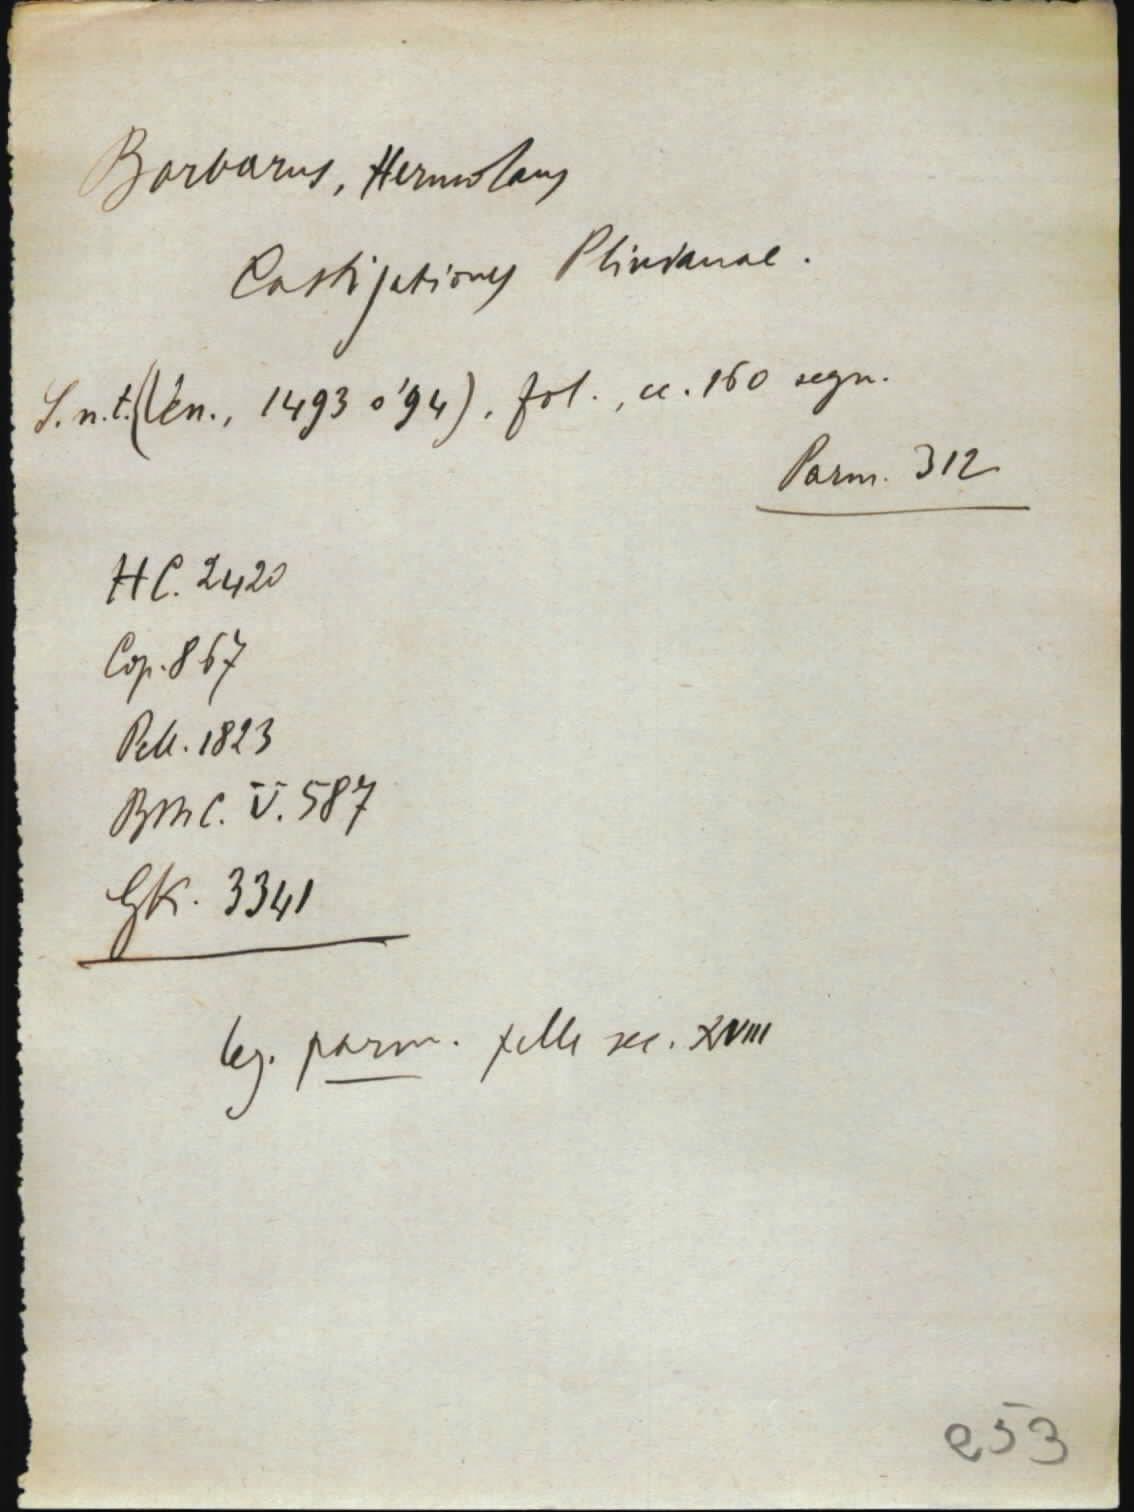 Barbarus, Hermolaus
Castigationes Plinianae.
S.n.t. (Ven., 1493 o '94), fol., cc. 160 segn.
Parm. 312
HC. 2420
Cop. 867
Pell. 1823
BMC. V. 587
GK. 3341
leg. parm. pelle sec. XVIII
253